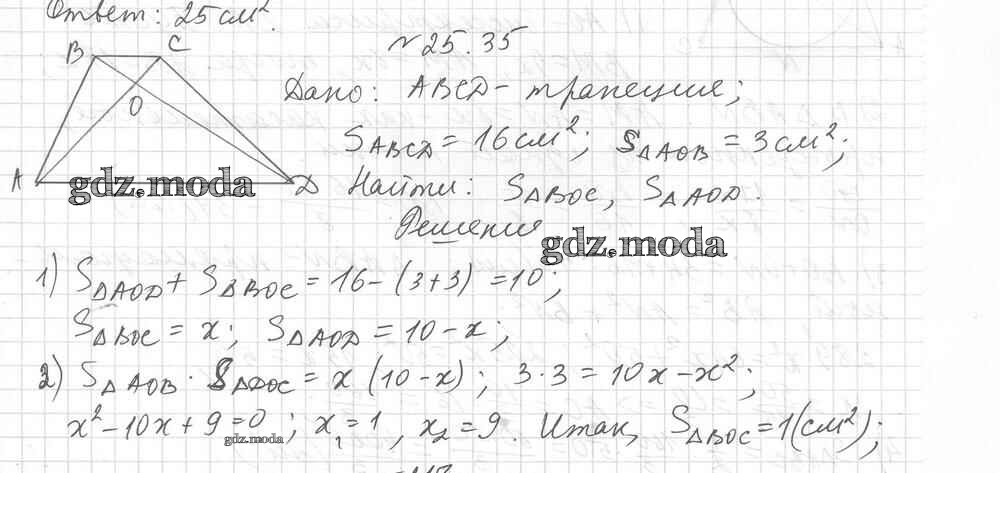 Ответ: 25 см².
№ 25.35
B C
O
A D
Дано: ABCD - трапеция;
S_ABCD = 16 см²; S_ΔAOB = 3 см²;
Найти: S_ΔBOC, S_ΔAOD.
gdz.moda
Решение
gdz.moda
1) S_ΔAOD + S_ΔBOC = 16 - (3+3) = 10;
S_ΔBOC = x; S_ΔAOD = 10 - x;
2) S_ΔAOB · S_ΔDOC = x (10 - x); 3 · 3 = 10x - x²;
x² - 10x + 9 = 0; x₁ = 1, x₂ = 9. Итак, S_ΔBOC = 1 (см²);
gdz.moda